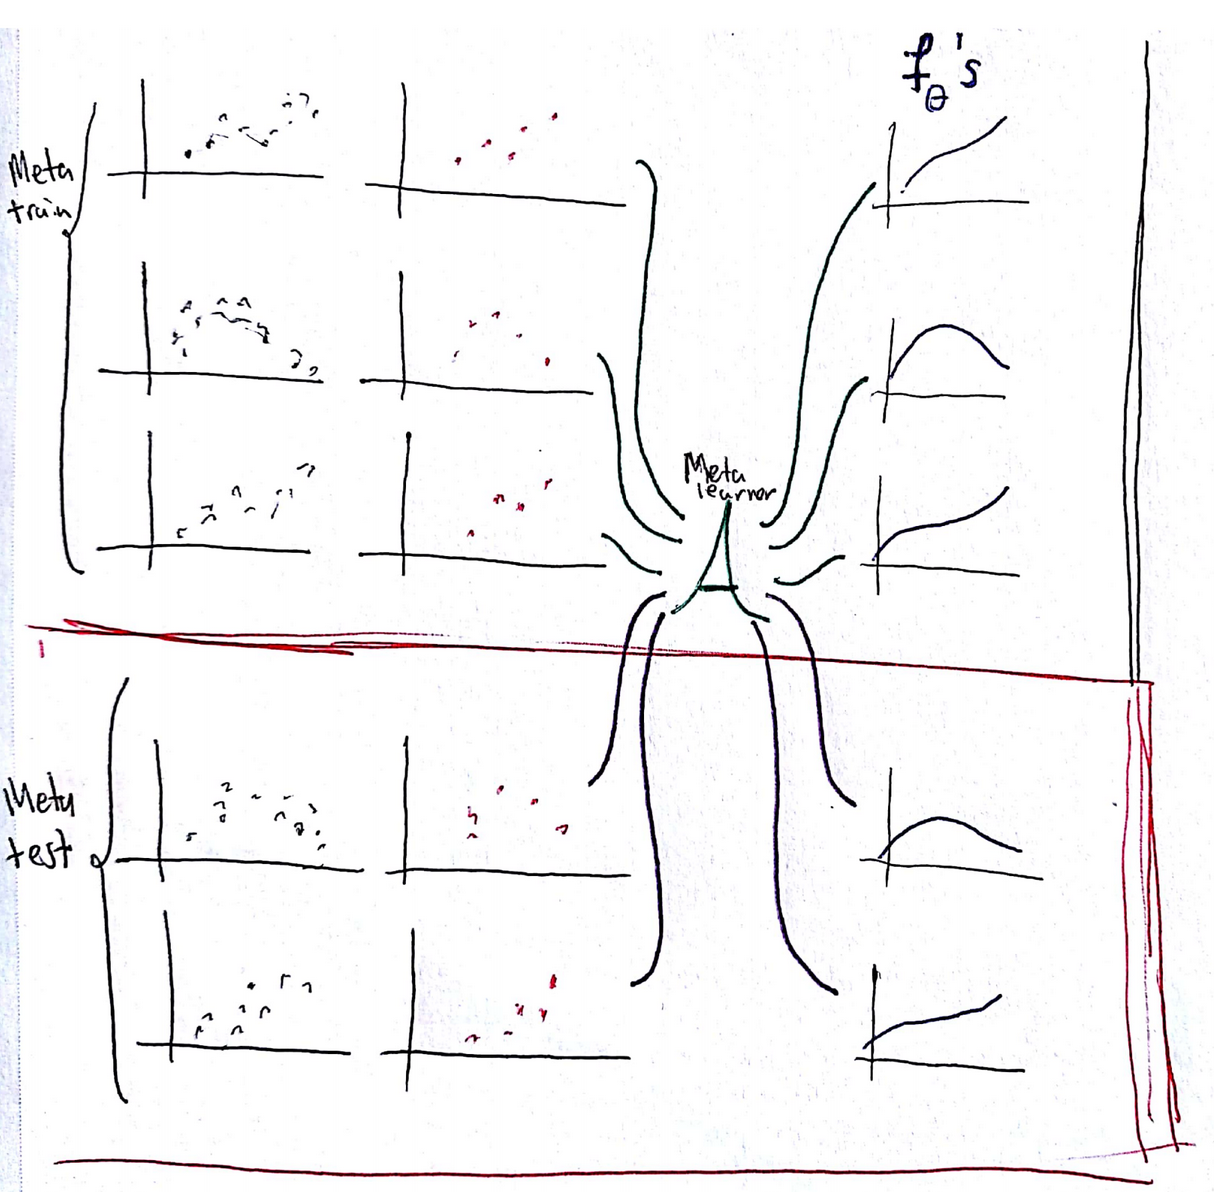 f_θ's
Meta
train
Meta
learner
Meta
test